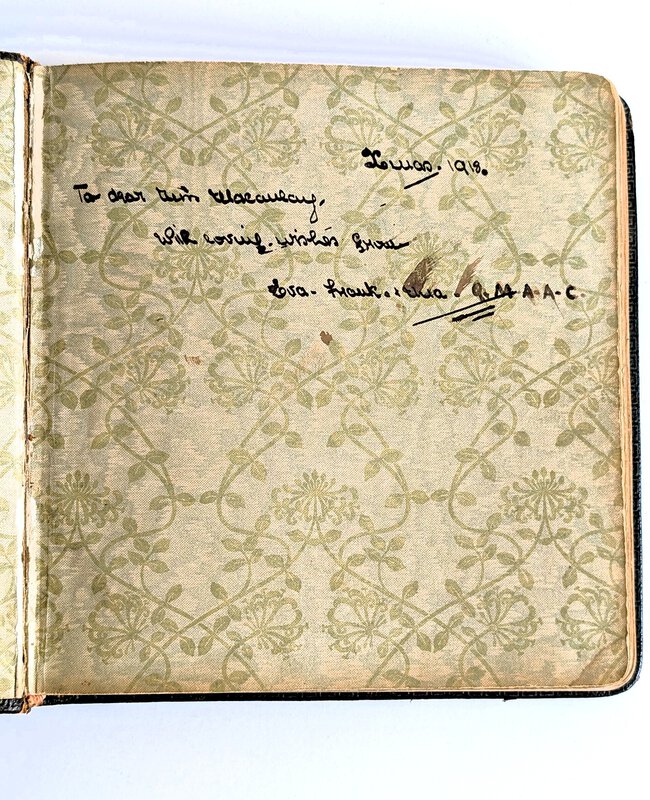 Xmas. 1918.
To dear Miss Macaulay,
With loving wishes from
Eva. Frank. & Q.M.A.A.C.